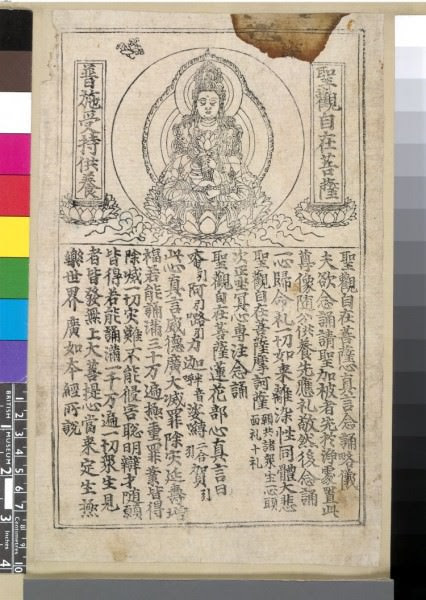 聖觀自在菩薩
普施受持供養
聖觀自在菩薩心真言念誦略儀
夫欲念誦請聖加被者先於淨處置此
尊像隨分供養先應礼敬然後念誦
心歸命礼一切如來離染性同體大悲
聖觀自在菩薩摩訶薩願共諸衆生志心頭面礼十礼
次正坐冥心專注念誦
聖觀自在菩薩蓮花部心真言曰
唵引阿引嚕引力迦半音娑嚩二合賀引
此心真言威德廣大滅罪除灾延壽增
福若能誦滿三十万遍極重罪業皆得
除滅一切灾難不能侵害聡明辯才隨願
皆得若能誦滿一千万遍一切衆生見
者皆發無上大菩提心當來定生極
樂世界廣如本經所說
BRITISH MUSEUM
1 2 3 4 Inches
5 10 Centimetres